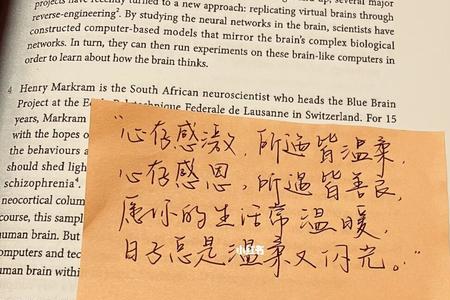 projects have recently turned to a new approach: replicating virtual brains through
reverse-engineering². By studying the neural networks in the brain, scientists have
constructed computer-based models that mirror the brain's complex biological
networks. In turn, they can then run experiments on these brain-like computers in
order to learn about how the brain thinks.
4 Henry Markram is the South African neuroscientist who heads the Blue Brain
Project at the Polytechnique Federale de Lausanne in Switzerland. For 15
years, Markram
with the hopes o
the behaviours a
should shed ligh
schizophrenia⁴.
neocortical colum
course, this sampl
uman brain. But
omputers and tec
uman brain withi
"心存感激,所遇皆温柔,
心存感恩,所遇皆善良,
愿你的生活常温暖,
日子总是温柔又闪光。"
小红书